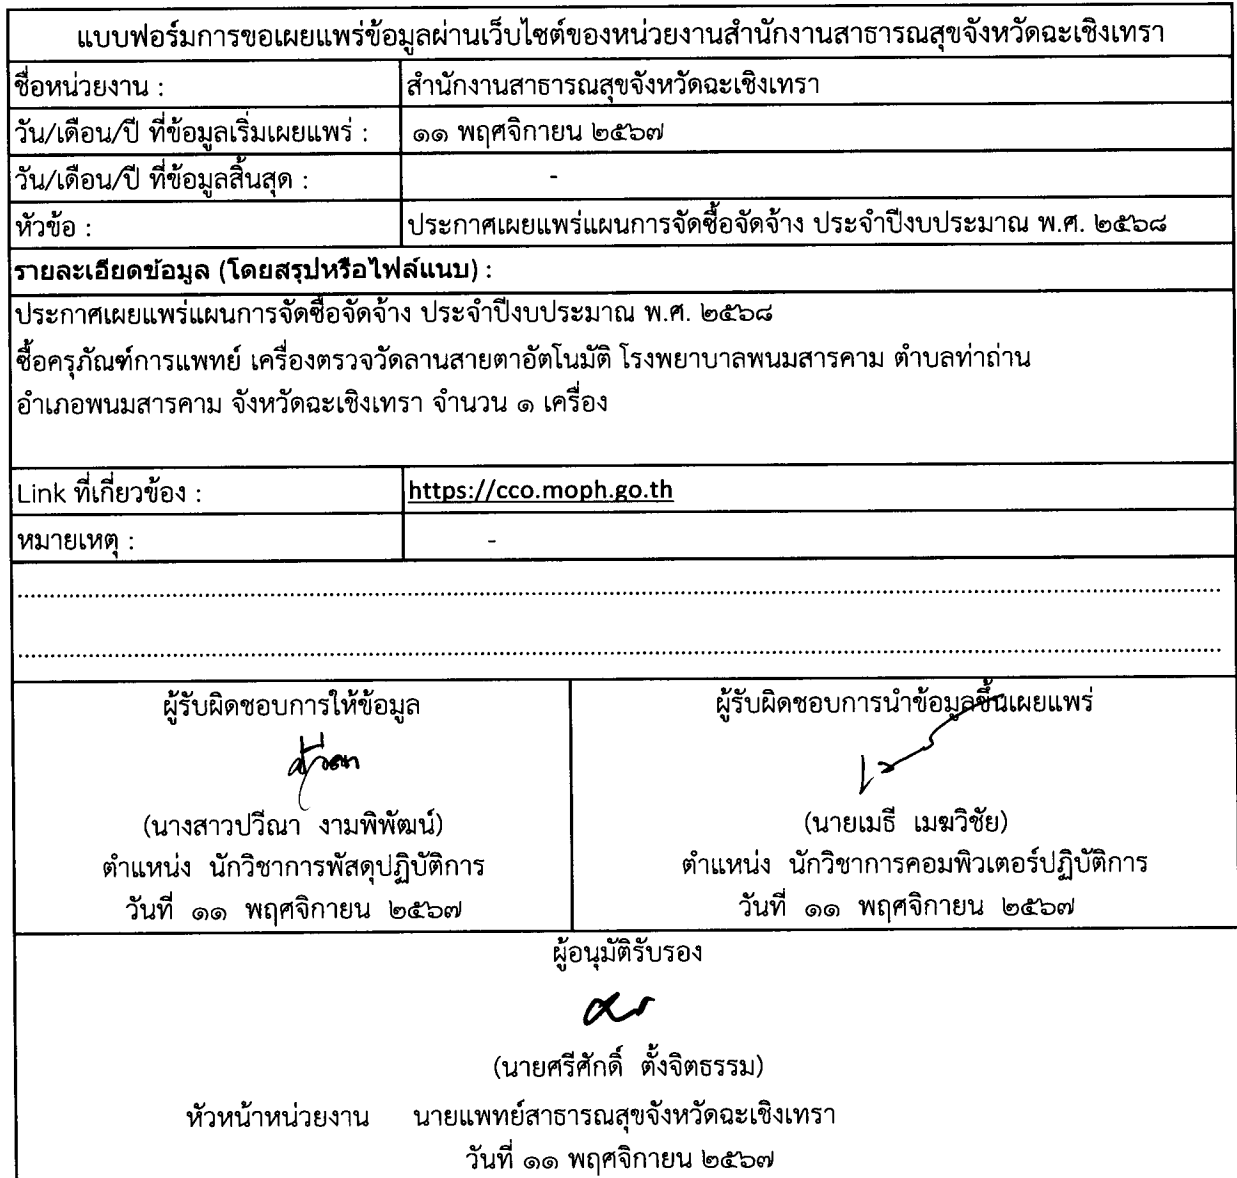 แบบฟอร์มการขอเผยแพร่ข้อมูลผ่านเว็บไซต์ของหน่วยงานสำนักงานสาธารณสุขจังหวัดฉะเชิงเทรา
ชื่อหน่วยงาน : สำนักงานสาธารณสุขจังหวัดฉะเชิงเทรา
วัน/เดือน/ปี ที่ข้อมูลเริ่มเผยแพร่ : ๑๑ พฤศจิกายน ๒๕๖๗
วัน/เดือน/ปี ที่ข้อมูลสิ้นสุด : -
หัวข้อ : ประกาศเผยแพร่แผนการจัดซื้อจัดจ้าง ประจำปีงบประมาณ พ.ศ. ๒๕๖๘
รายละเอียดข้อมูล (โดยสรุปหรือไฟล์แนบ) :
ประกาศเผยแพร่แผนการจัดซื้อจัดจ้าง ประจำปีงบประมาณ พ.ศ. ๒๕๖๘
ซื้อครุภัณฑ์การแพทย์ เครื่องตรวจวัดลานสายตาอัตโนมัติ โรงพยาบาลพนมสารคาม ตำบลท่าถ่าน
อำเภอพนมสารคาม จังหวัดฉะเชิงเทรา จำนวน ๑ เครื่อง
Link ที่เกี่ยวข้อง : https://cco.moph.go.th
หมายเหตุ : -
ผู้รับผิดชอบการให้ข้อมูล ผู้รับผิดชอบการนำข้อมูลขึ้นเผยแพร่
(นางสาวปวีณา งามพิพัฒน์) (นายเมธี เมฆวิชัย)
ตำแหน่ง นักวิชาการพัสดุปฏิบัติการ ตำแหน่ง นักวิชาการคอมพิวเตอร์ปฏิบัติการ
วันที่ ๑๑ พฤศจิกายน ๒๕๖๗ วันที่ ๑๑ พฤศจิกายน ๒๕๖๗
ผู้อนุมัติรับรอง
(นายศรีศักดิ์ ตั้งจิตธรรม)
หัวหน้าหน่วยงาน นายแพทย์สาธารณสุขจังหวัดฉะเชิงเทรา
วันที่ ๑๑ พฤศจิกายน ๒๕๖๗